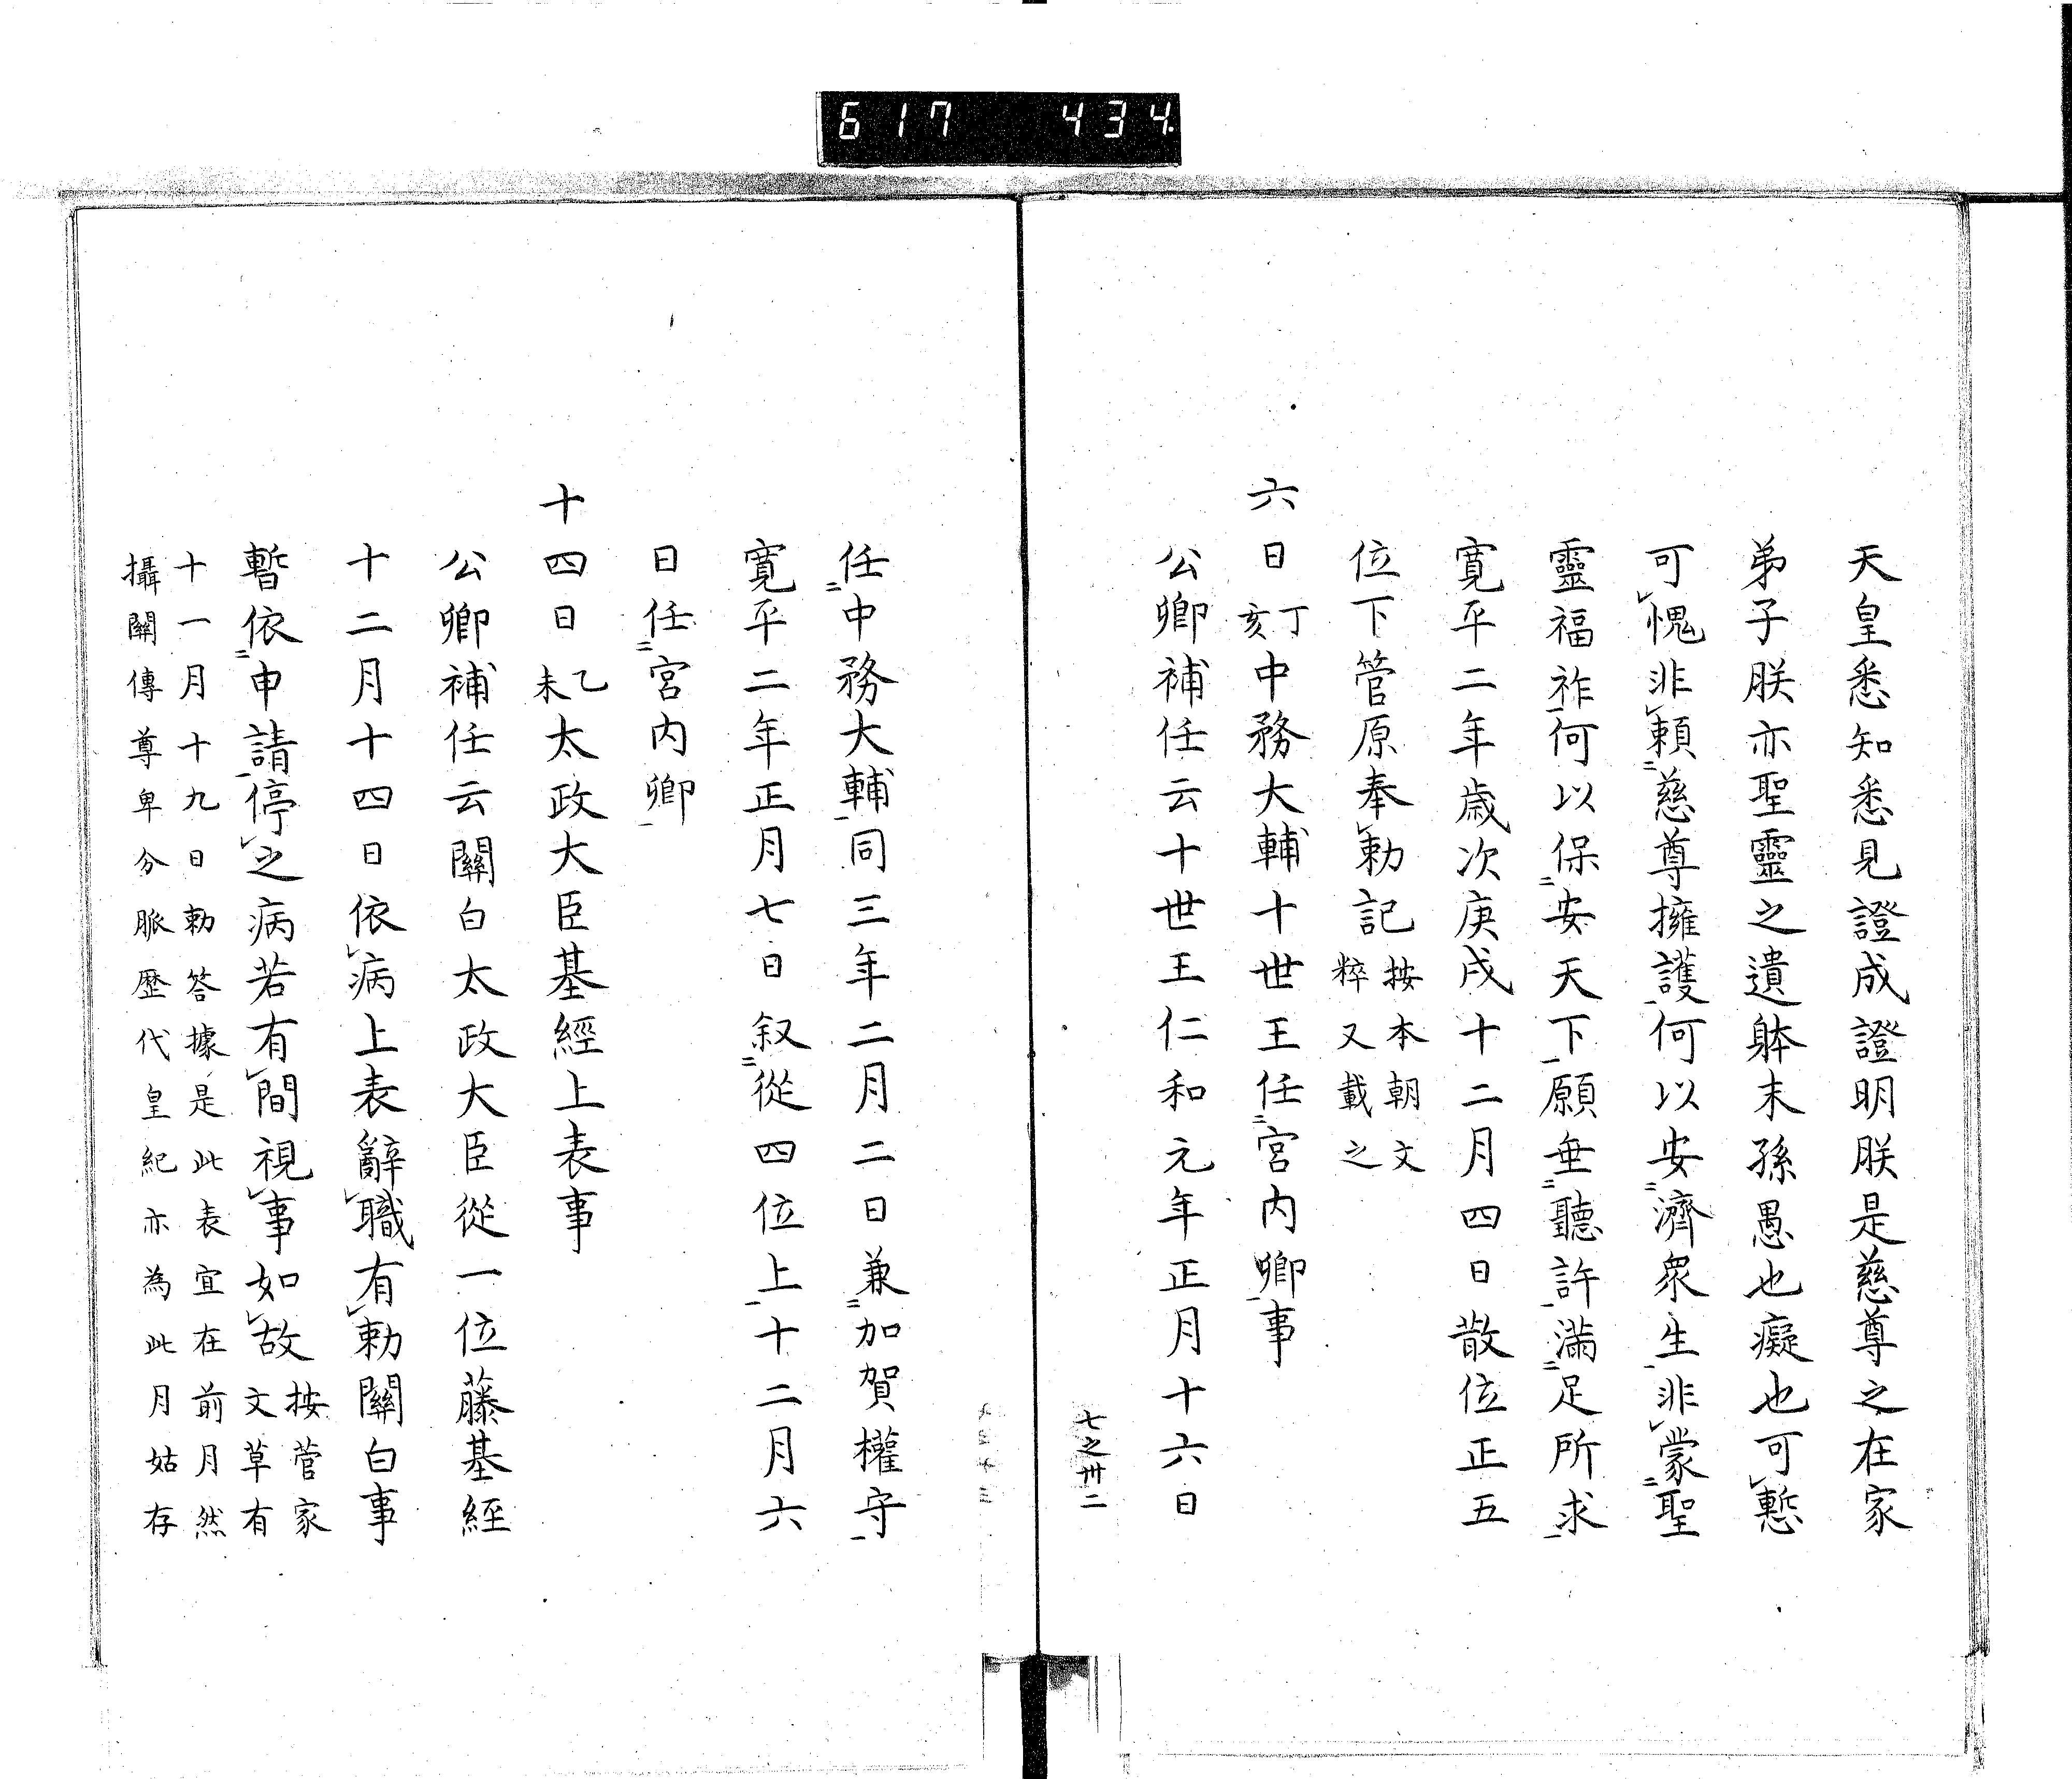 617 434
天皇悉知悉見證成證明朕是慈尊之在家
弟子朕亦聖靈之遺躰末孫愚也癡也可慙
可愧非頼慈尊擁護何以安濟衆生非蒙聖
靈福祚何以保安天下願垂聽許滿足所求
寛平二年歳次庚戌十二月四日散位正五
位下菅原奉勅記
按本朝文
粹又載之
六日
丁
亥
中務大輔十世王任宮内卿事
公卿補任云十世王仁和元年正月十六日
七之卅二
任中務大輔同三年二月二日兼加賀權守
寛平二年正月七日叙從四位上十二月六
日任宮内卿
十四日
乙
未
太政大臣基經上表事
公卿補任云關白太政大臣從一位藤基經
十二月十四日依病上表辭職有勅關白事
暫依申請停之病若有間視事如故
按菅家
文草有
十一月十九日勅答據是此表宜在前月然
攝關傳尊卑分脈歷代皇紀亦為此月姑存